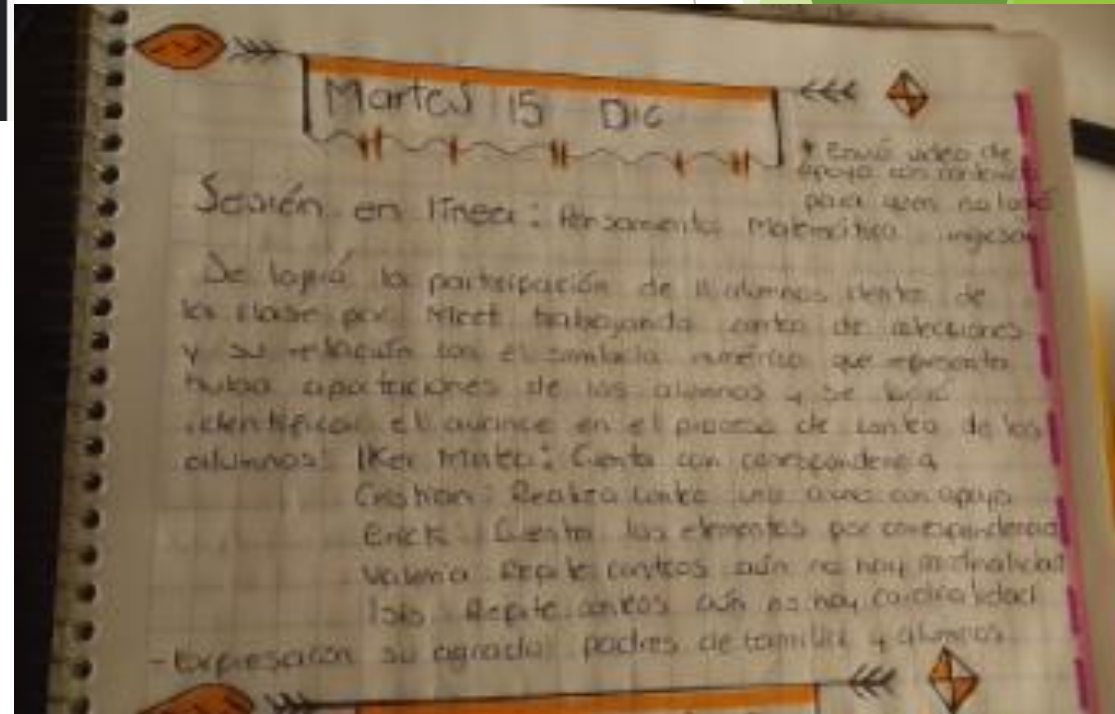 Martes 15 Dic
* Envió video de
apoyo con
para quien no logró
ingresar
Sesión en línea: Pensamiento Matemático
Se logró la participación de 11 alumnos dentro de
la clase por Meet trabajando conteo de colecciones
y su relación con el símbolo numérico que representa
hubo aportaciones de los alumnos y se logró
identificar el avance en el proceso de conteo de los
alumnos: Iker Mateo: Cuenta con correspondencia
Cristhian: Realiza conteo uno a uno con apoyo
Erick: Cuenta los elementos por correspondencia
Valeria: Repite conteos aún no hay cardinalidad
Isis: Repite conteos aún no hay cardinalidad
- Expresaron su agrado padres de familia y alumnos